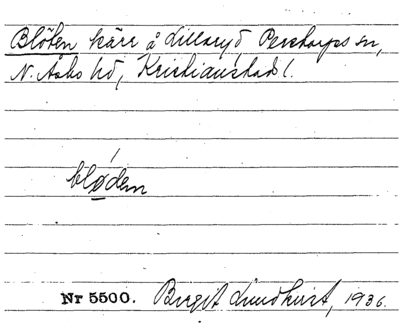 Blöten kärr å Lillaryd, Perstorps sn,
N. Åsbo hd, Kristianstads l.
blødem
Nr 5500. Birgit Lundkvist, 1936.